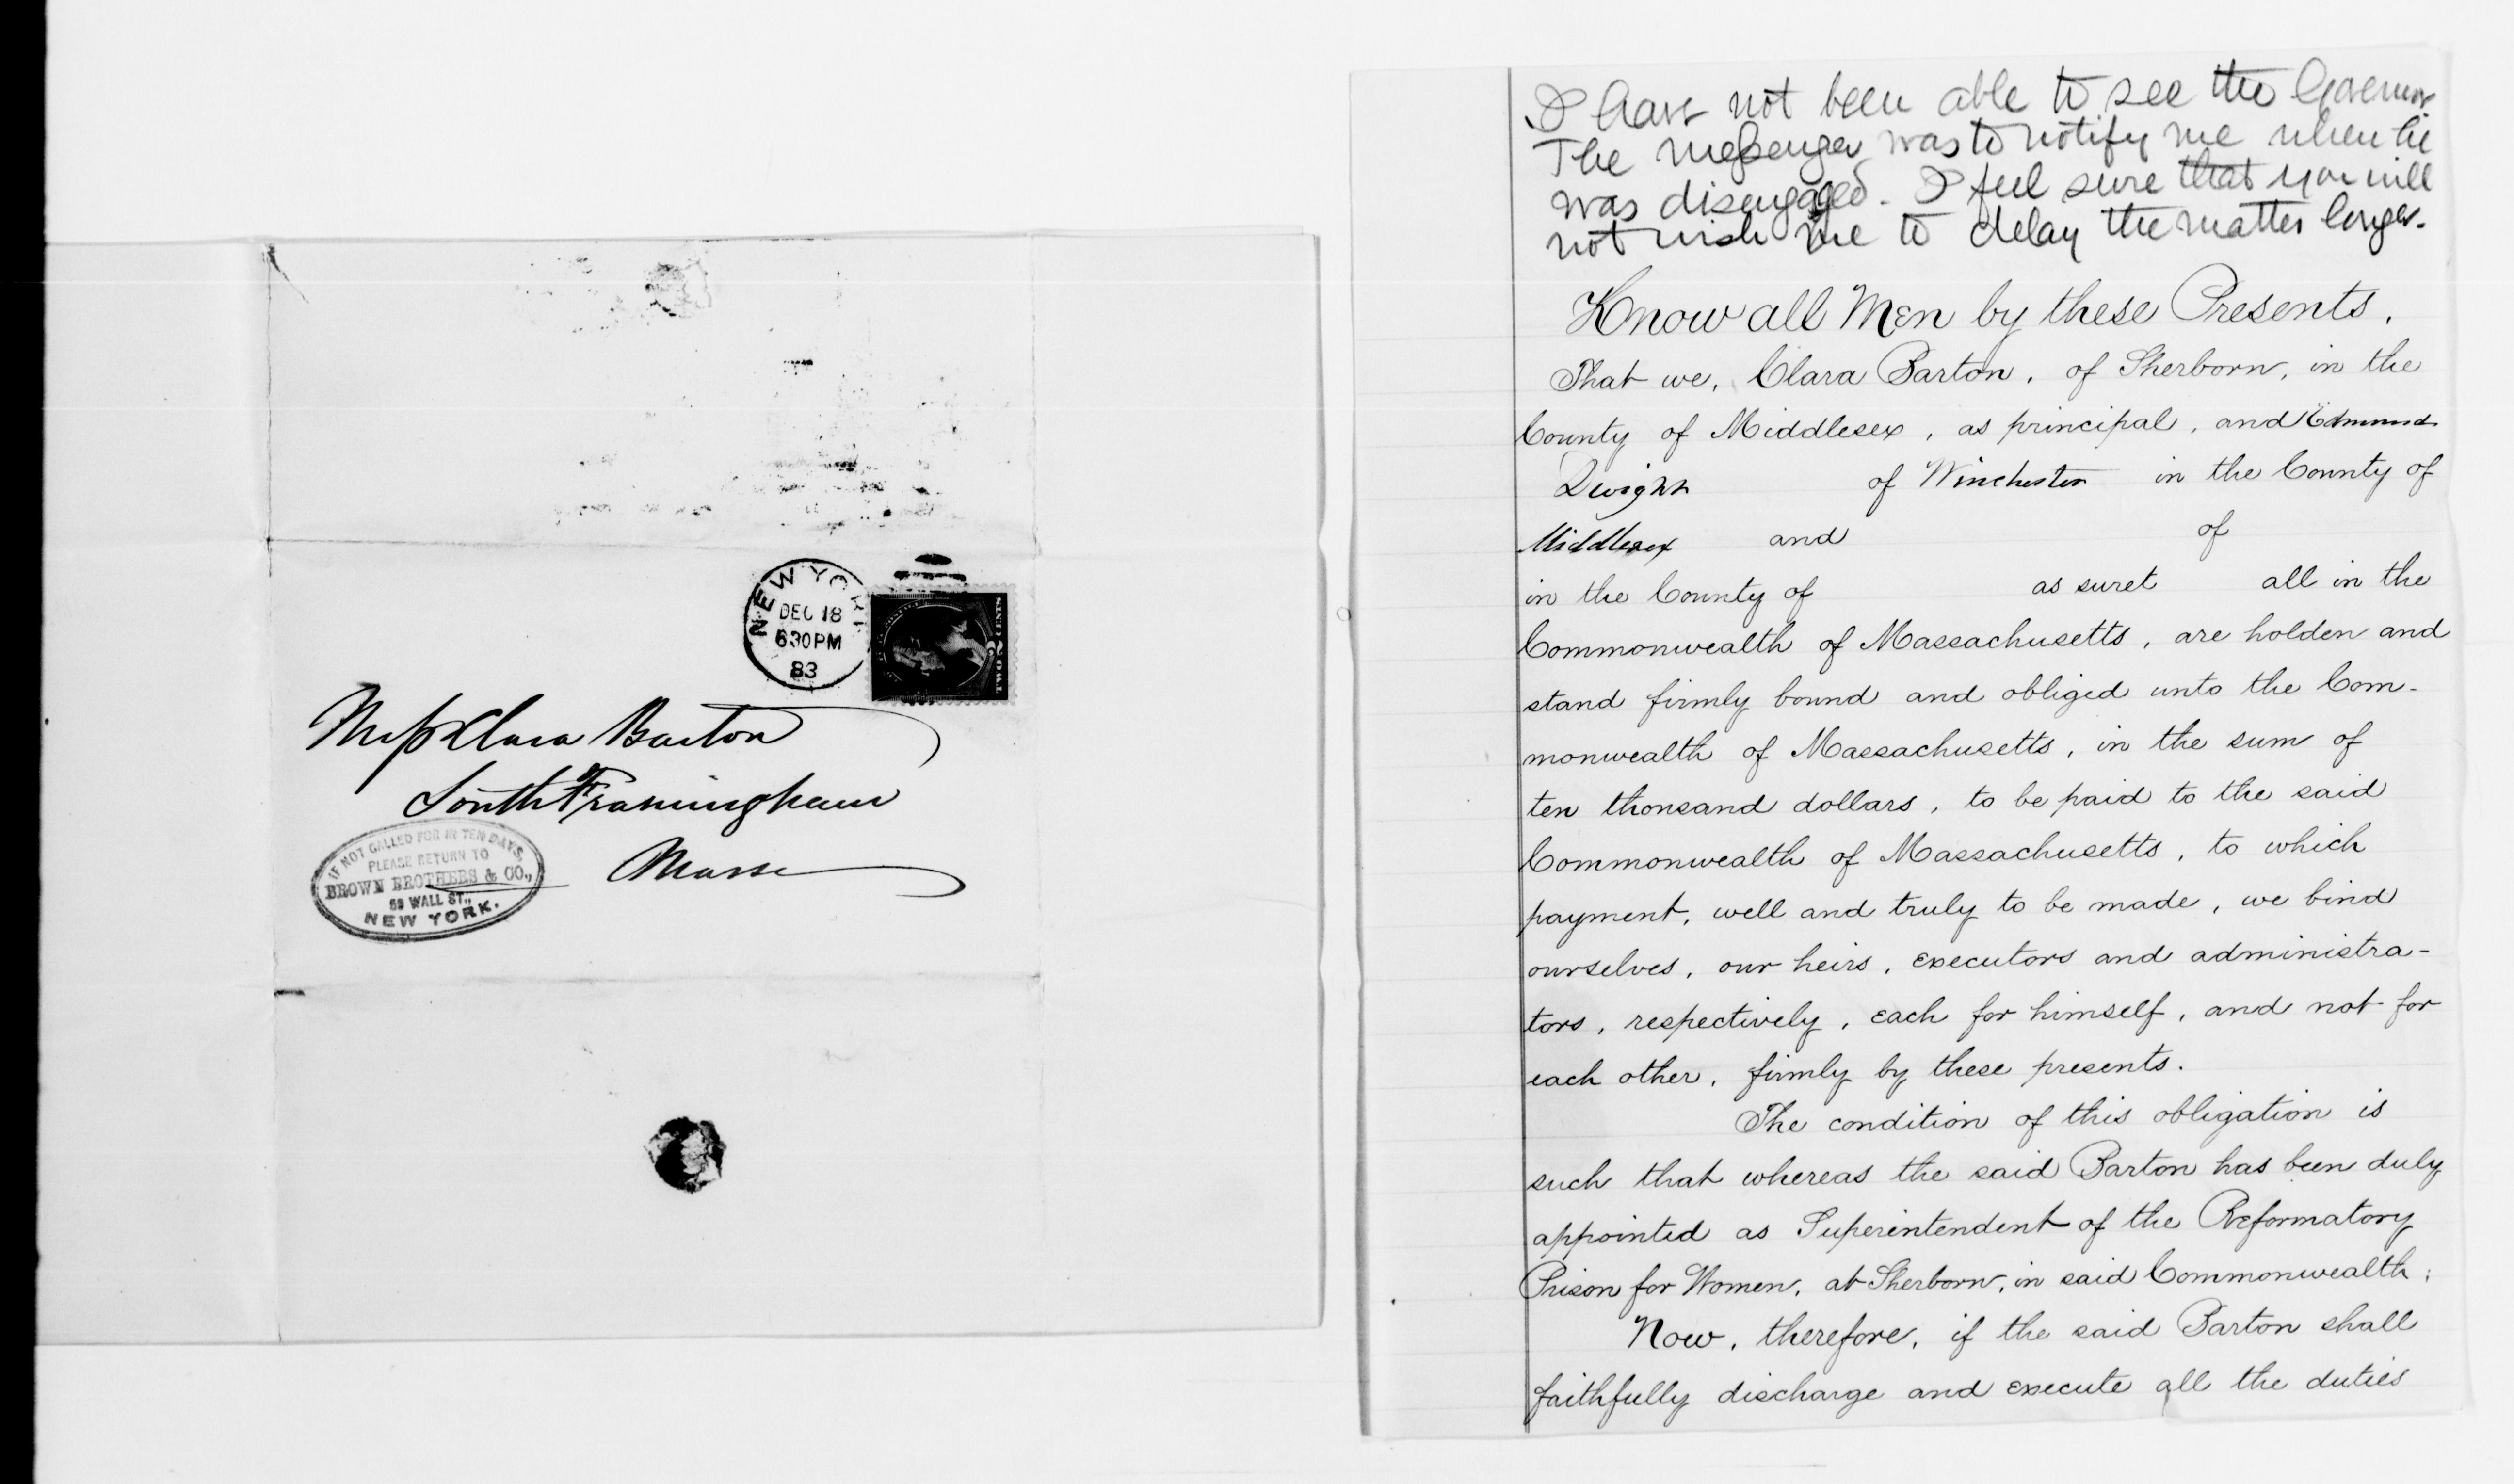 NEW YORK
DEC 18
630PM
83
TWO 2 CENTS
Miss Clara Barton
South Framingham
Mass
IF NOT CALLED FOR IN TEN DAYS,
PLEASE RETURN TO
BROWN BROTHERS & CO.,
59 WALL ST.,
NEW YORK.
I have not been able to see the Governor
The messenger was to notify me when he
was disengaged. I feel sure that you will
not wish me to delay the matter longer.
Know all Men by these Presents,
That we, Clara Barton, of Sherborn, in the
County of Middlesex, as principal, and Edmund
Dwight of Winchester in the County of
Middlesex and of
in the County of as suret all in the
Commonwealth of Massachusetts, are holden and
stand firmly bound and obliged unto the Com-
monwealth of Massachusetts, in the sum of
ten thousand dollars, to be paid to the said
Commonwealth of Massachusetts, to which
payment, well and truly to be made, we bind
ourselves, our heirs, executors and administra-
tors, respectively, each for himself, and not for
each other, firmly by these presents.
The condition of this obligation is
such that whereas the said Barton has been duly
appointed as Superintendent of the Reformatory
Prison for Women, at Sherborn, in said Commonwealth;
Now, therefore, if the said Barton shall
faithfully discharge and execute all the duties